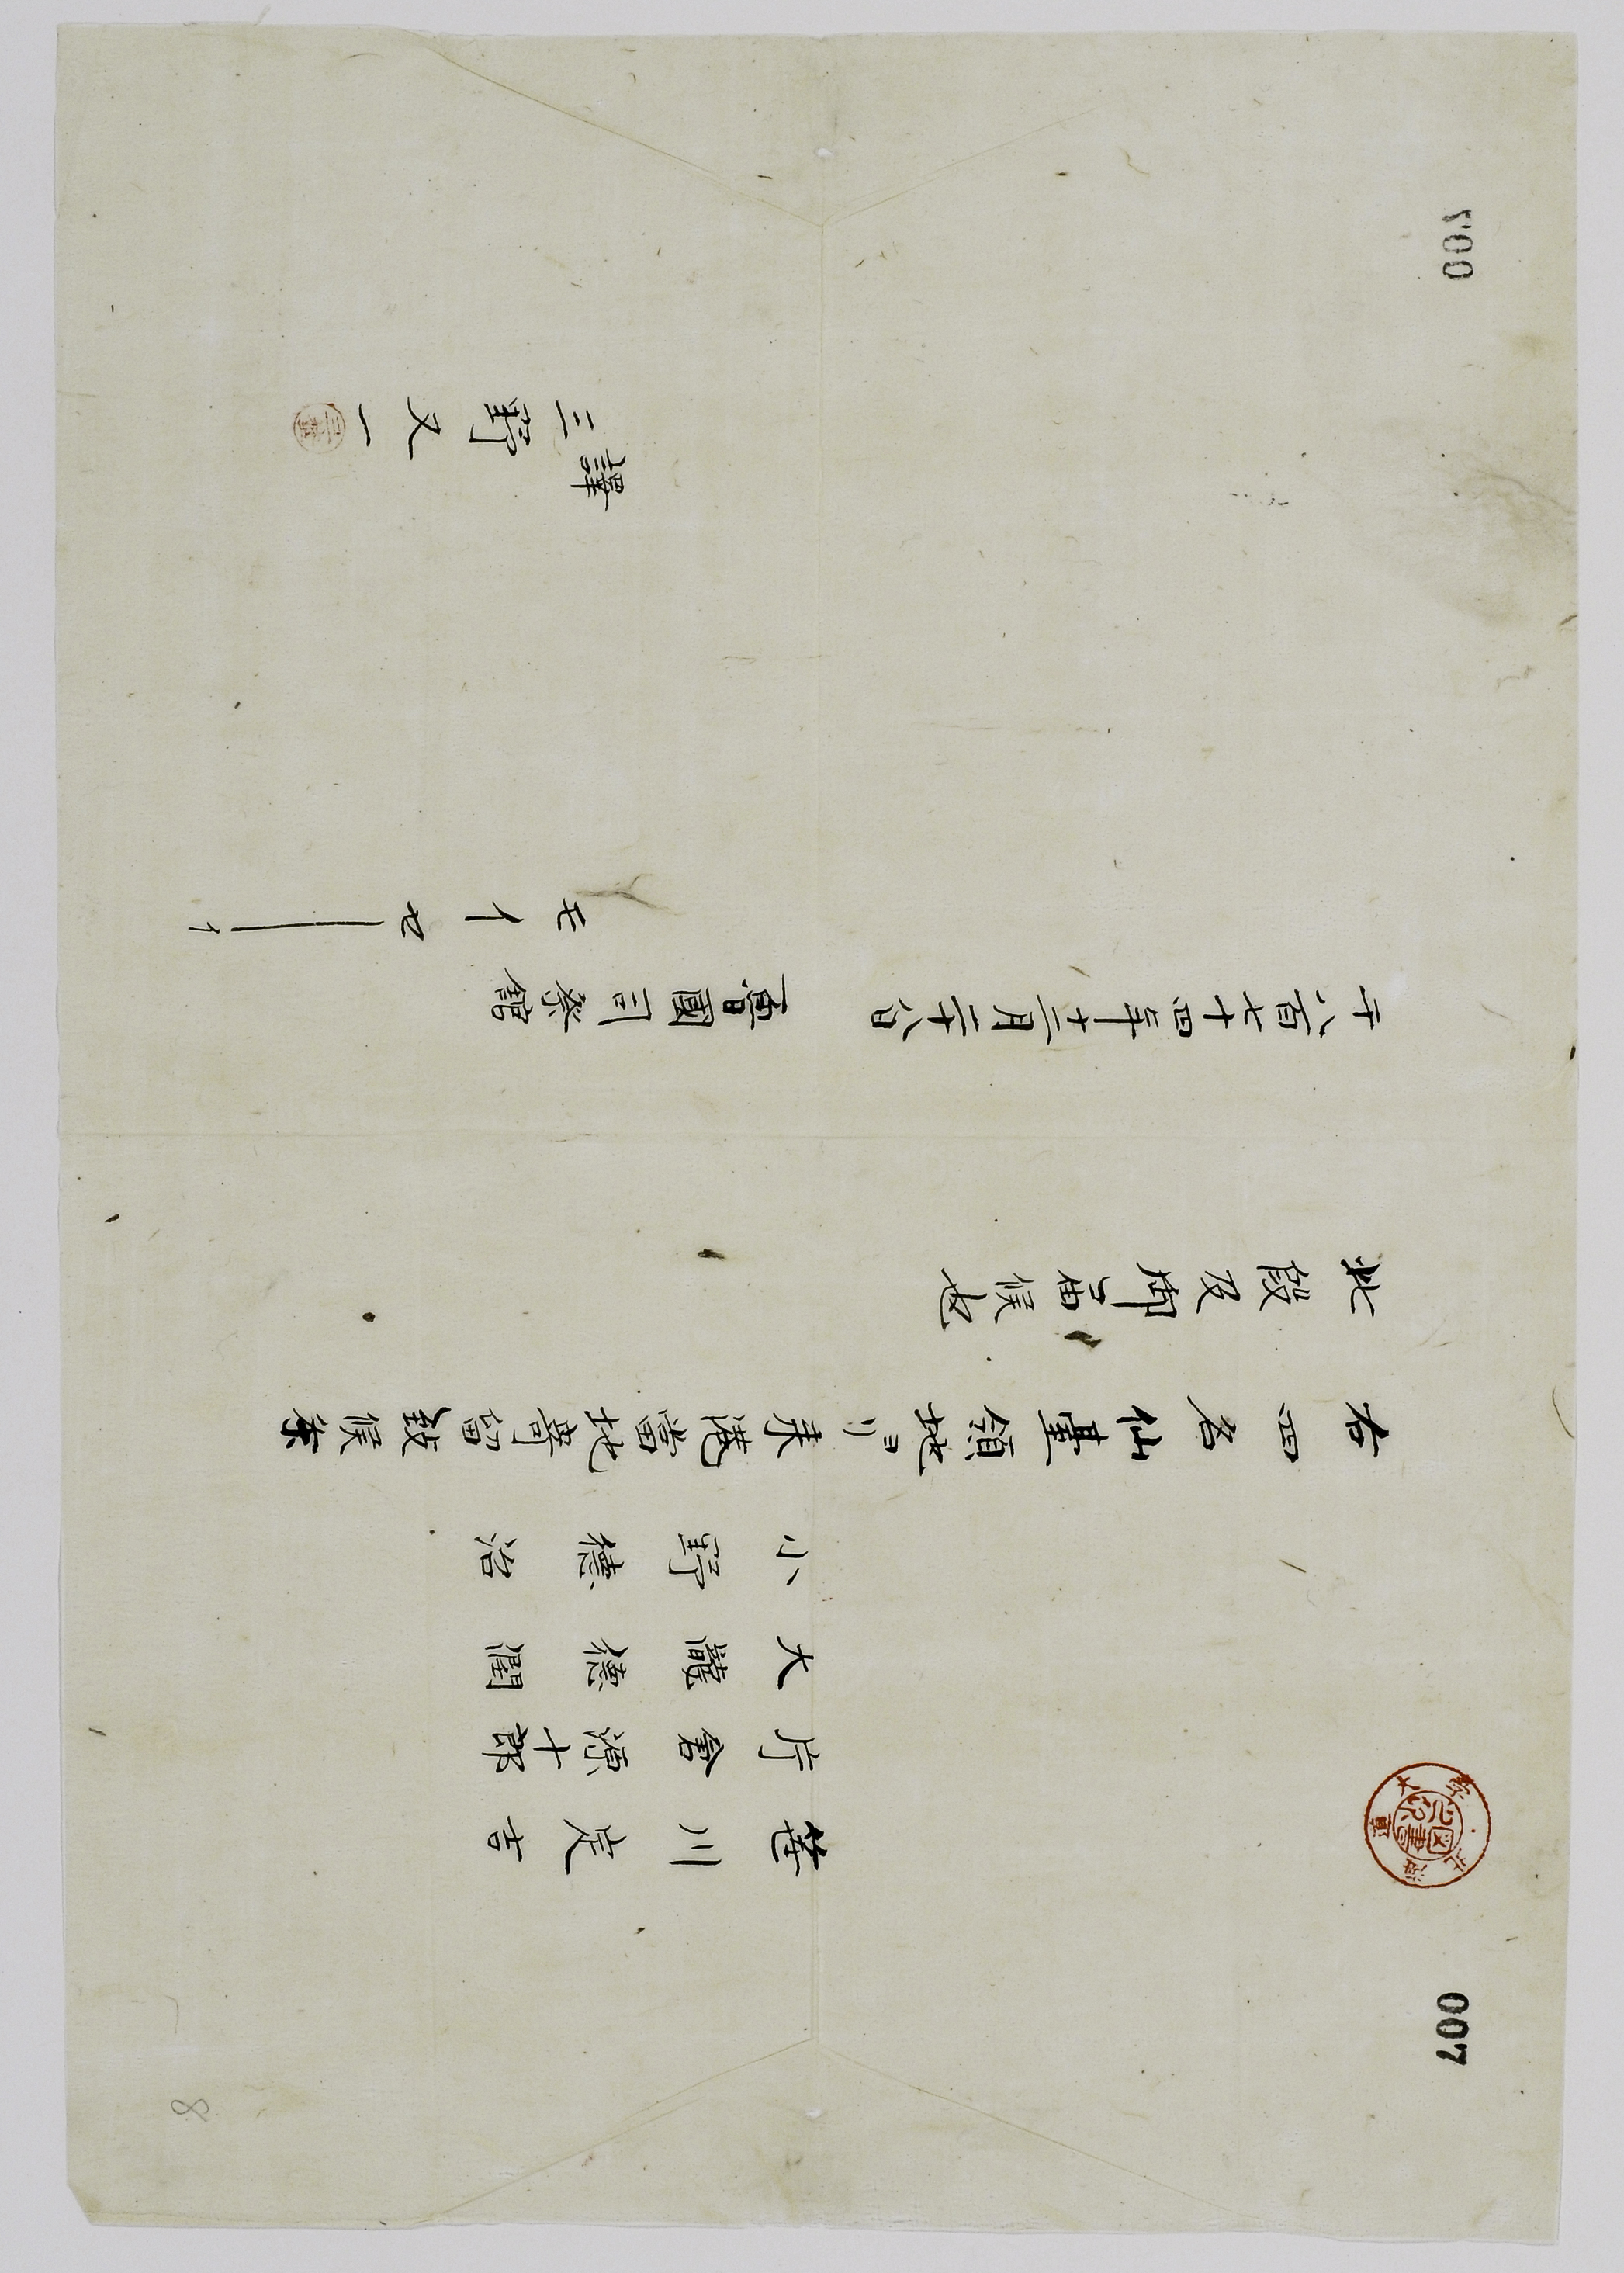 007
笹川定吉
片倉源十郎
大瀧德潤
小野德治
右四名仙臺領地ヨリ来港當地寄留致候条
此段及御届候也
千八百七十四年十二月二十八日
魯國司祭館
モイセーイ
譯
三野又一
007
北海道大学
8